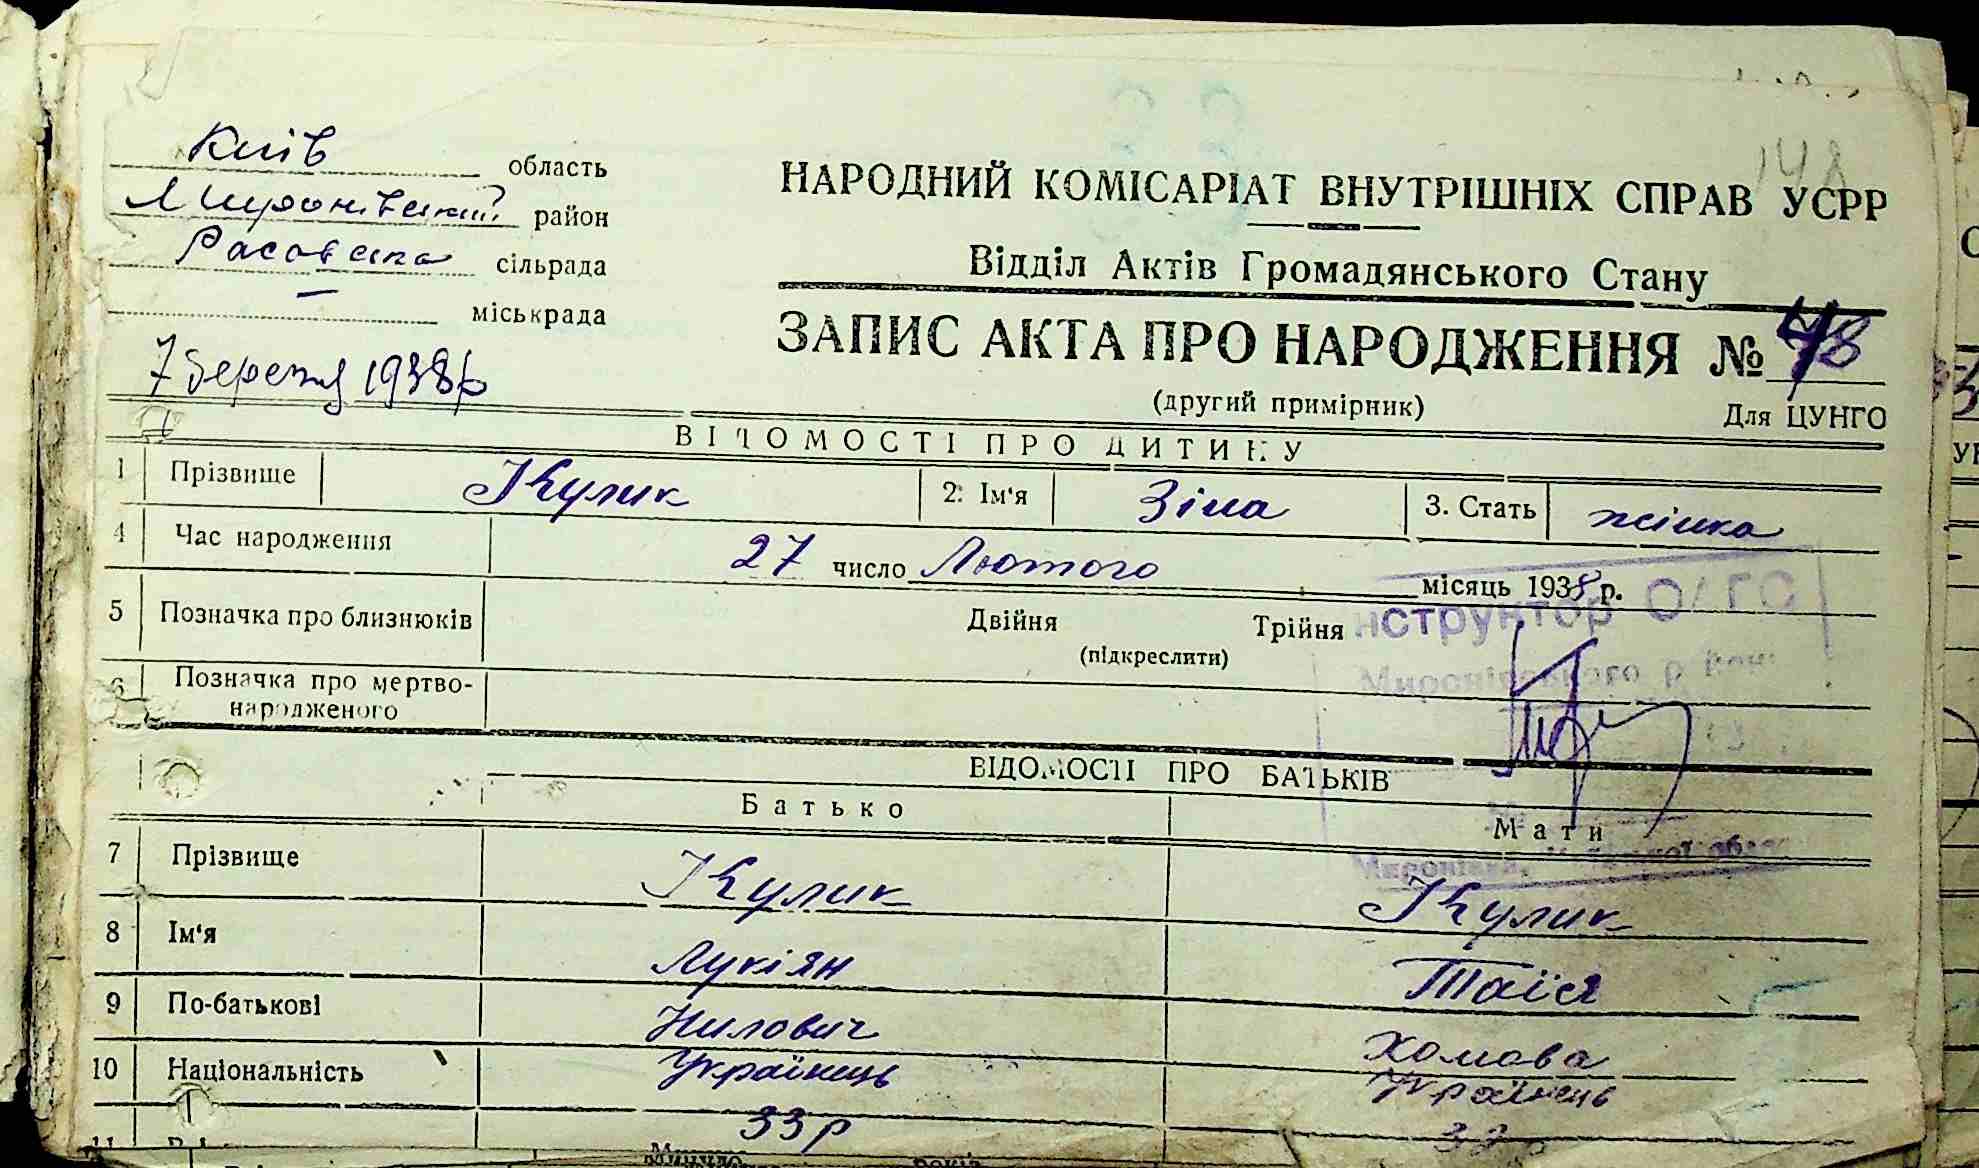 Київ область
Миронівський район
Расавська сільрада
— міськрада
7 березня 1938р
148
НАРОДНИЙ КОМІСАРІАТ ВНУТРІШНІХ СПРАВ УСРР
Відділ Актів Громадянського Стану
ЗАПИС АКТА ПРО НАРОДЖЕННЯ № 48
(другий примірник) Для ЦУНГО
ВІДОМОСТІ ПРО ДИТИНУ
1 Прізвище Кулик 2. Ім'я Зіна 3. Стать жінка
4 Час народження 27 число Лютого місяць 1938 р.
5 Позначка про близнюків Двійня Трійня
(підкреслити)
нструктор ОАГС
Миронівського
6 Позначка про мертво-
народженого
ВІДОМОСТІ ПРО БАТЬКІВ
Батько Мати
Миронівка,
7 Прізвище Кулик Кулик
8 Ім'я Лукіян Таїся
9 По-батькові Нилович Хомова
10 Національність Українець Українець
11 33 р
Минуло років